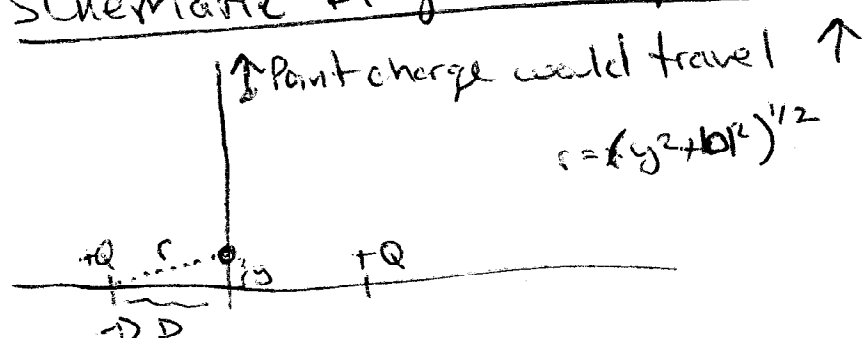 Schematic
↑ Point charge would travel ↑
r = (y²+D²)^1/2
+Q r +Q
y
-D D